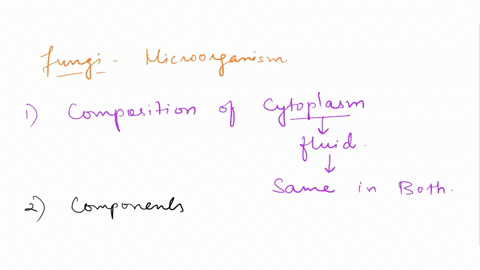 Fungi - Microorganism.
1) Composition of Cytoplasm
↓
fluid.
↓
Same in Both.
2) Components